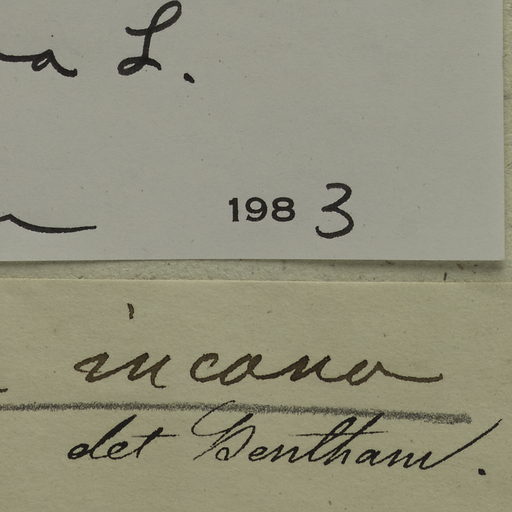 a L.
1983
incana
det Bentham.